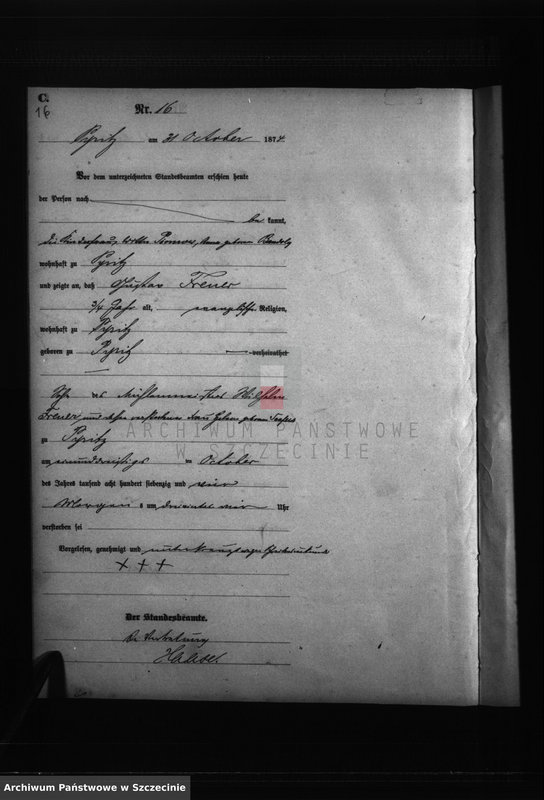 C.
16
Nr. 16
Pyritz am 31 October 1874
Vor dem unterzeichneten Standesbeamten erschien heute
der Person nach
be kannt,
die Kinderfrau, Wittwe geboren
wohnhaft zu Pyritz
und zeigte an, daß Gustav Treuer
3/4 Jahr alt, evangelischer Religion,
wohnhaft zu Pyritz
geboren zu Pyritz — verheirathet
Sohn des Wilhelm
Treuer und dessen Frau geboren
zu Pyritz
am einunddreißigsten October
des Jahres tausend acht hundert siebenzig und vier
Morgens um vier Uhr
verstorben sei
Vorgelesen, genehmigt und unterkreuzt wegen
+ + +
Der Standesbeamte.
In Vertretung
ARCHIWUM PAŃSTWOWE
W SZCZECINIE
Archiwum Państwowe w Szczecinie